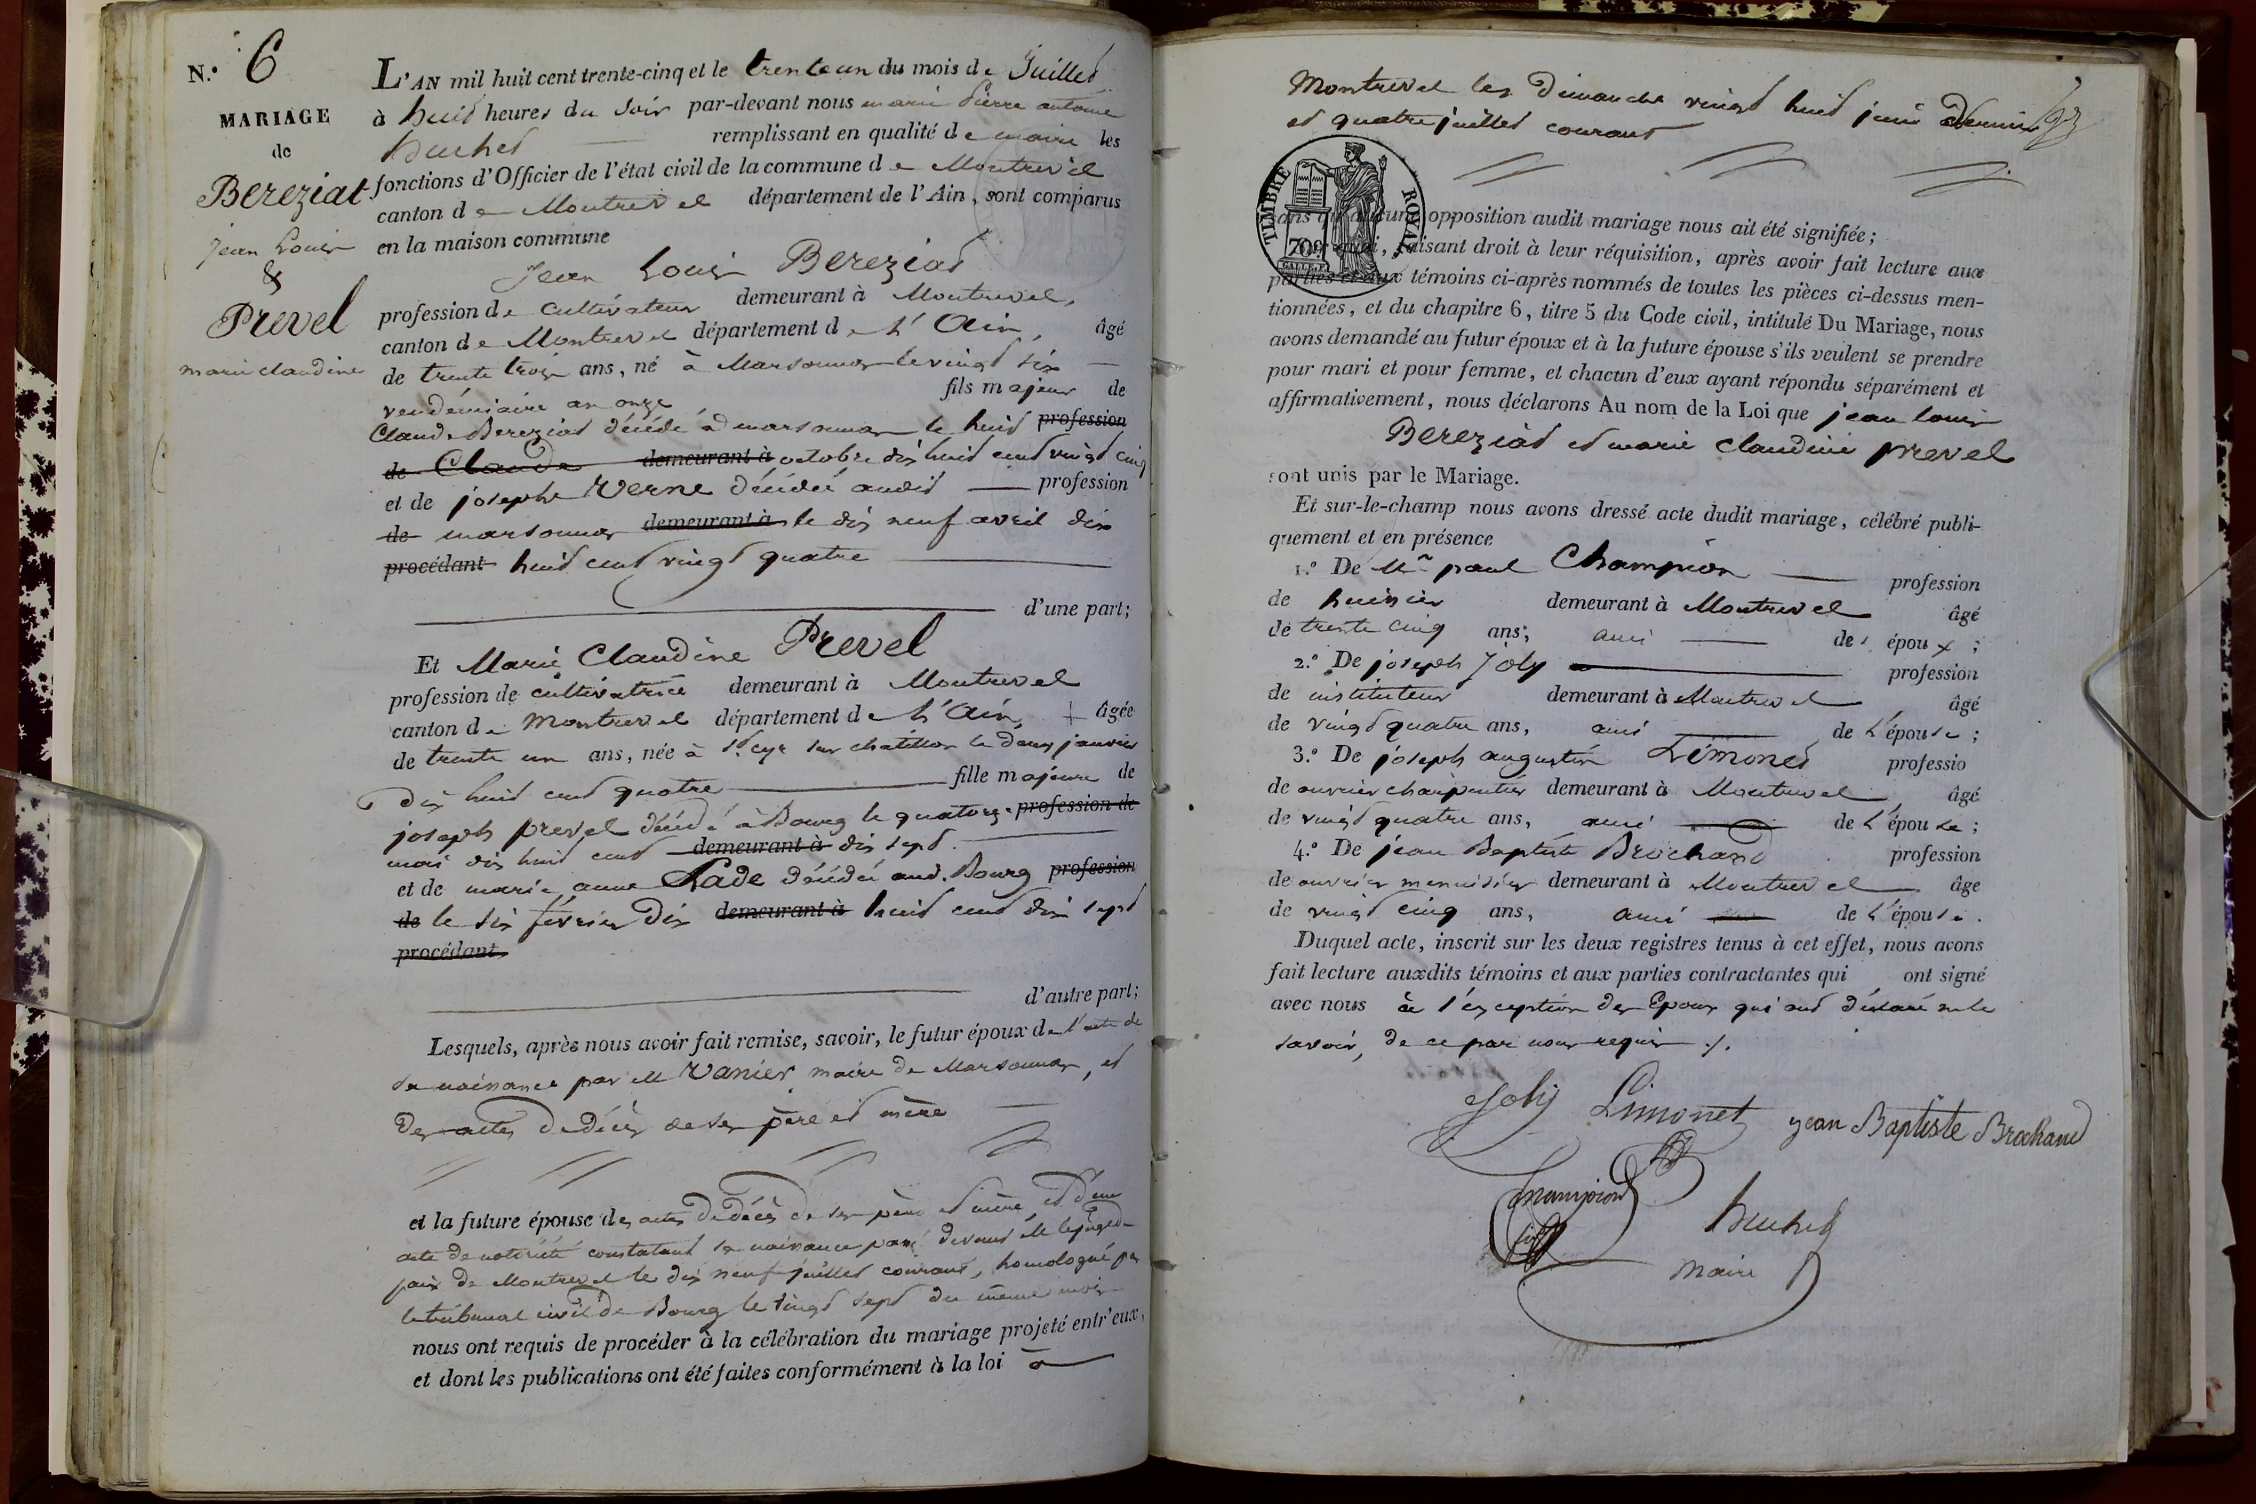 N.º 6
MARIAGE
de
Bereziat
jean Louis
&
Prevel
marie claudine
L'AN mil huit cent trente-cinq et le trente un du mois de Juillet
à huit heures du soir par-devant nous marie Pierre antoine
huchet remplissant en qualité de maire les
fonctions d'Officier de l'état civil de la commune de Montrevel
canton de Montrevel département de l'Ain, sont comparus
en la maison commune
Jean Louis Bereziat
profession de cultivateur demeurant à Montrevel,
canton de Montrevel département de L'Ain, âgé
de trente trois ans, né à Marsonnas le vingt six
vendémiaire an onze fils majeur de
Claude Bereziat décédé à marsonnas le huit profession
de Claude demeurant à octobre dix huit cent vingt cinq
et de josephe Verne décédée audit profession
de marsonnas demeurant à le dix neuf avril dix
procédant huit cent vingt quatre
d'une part;
Et Marie Claudine Prevel
profession de cultivatrice demeurant à Montrevel
canton de Montrevel département de L'Ain, âgée
de trente un ans, née à St. cyr sur chatillon le deux janvier
dix huit cent quatre fille majeure de
joseph prevel décédé à Bourg le quatorze profession de
mai dix huit cent demeurant à dix sept.
et de marie anne Lade décédée aud. Bourg profession
de le six février dix demeurant à huit cent dix sept
procédant
d'autre part;
Lesquels, après nous avoir fait remise, savoir, le futur époux de l'acte de
sa naissance par M Vanier maire de Marsonnas, et
des actes de décès de ses père et mère
et la future épouse des actes de décès de ses père et mère, et d'un
acte de notoriété constatant sa naissance passé devant M le juge de
paix de Montrevel le dix neuf juillet courant, homologué par
le tribunal civil de Bourg le vingt sept du même mois
nous ont requis de procéder à la célébration du mariage projeté entr'eux,
et dont les publications ont été faites conformément à la loi à
Montrevel les dimanches vingt huit juin dernier
et quatre juillet courant
TIMBRE ROYAL
70c
sans qu'aucune opposition audit mariage nous ait été signifiée;
Sur quoi, faisant droit à leur réquisition, après avoir fait lecture aux
parties et aux témoins ci-après nommés de toutes les pièces ci-dessus men-
tionnées, et du chapitre 6, titre 5 du Code civil, intitulé Du Mariage, nous
avons demandé au futur époux et à la future épouse s'ils veulent se prendre
pour mari et pour femme, et chacun d'eux ayant répondu séparément et
affirmativement, nous déclarons Au nom de la Loi que jean louis
Bereziat et marie claudine prevel
sont unis par le Mariage.
Et sur-le-champ nous avons dressé acte dudit mariage, célébré publi-
quement et en présence
1.º De Mre paul Champion profession
de huissier demeurant à Montrevel âgé
de trente cinq ans; ami des époux;
2.º De joseph Joly profession
de instituteur demeurant à Montrevel âgé
de vingt quatre ans, ami de L'épouse;
3.º De joseph augustin Limonet professio
de ouvrier charpentier demeurant à Montrevel âgé
de vingt quatre ans, ami de L'épouse;
4.º De jean Baptiste Brochand profession
de ouvrier menuisier demeurant à Montrevel âge
de vingt cinq ans, ami de L'épouse.
Duquel acte, inscrit sur les deux registres tenus à cet effet, nous avons
fait lecture auxdits témoins et aux parties contractantes qui ont signé
avec nous à l'exception des Epoux qui ont déclaré ne le
savoir, de ce par nous requis ./.
Joly Limonet jean Baptiste Brochand
Champion
huchet
Maire